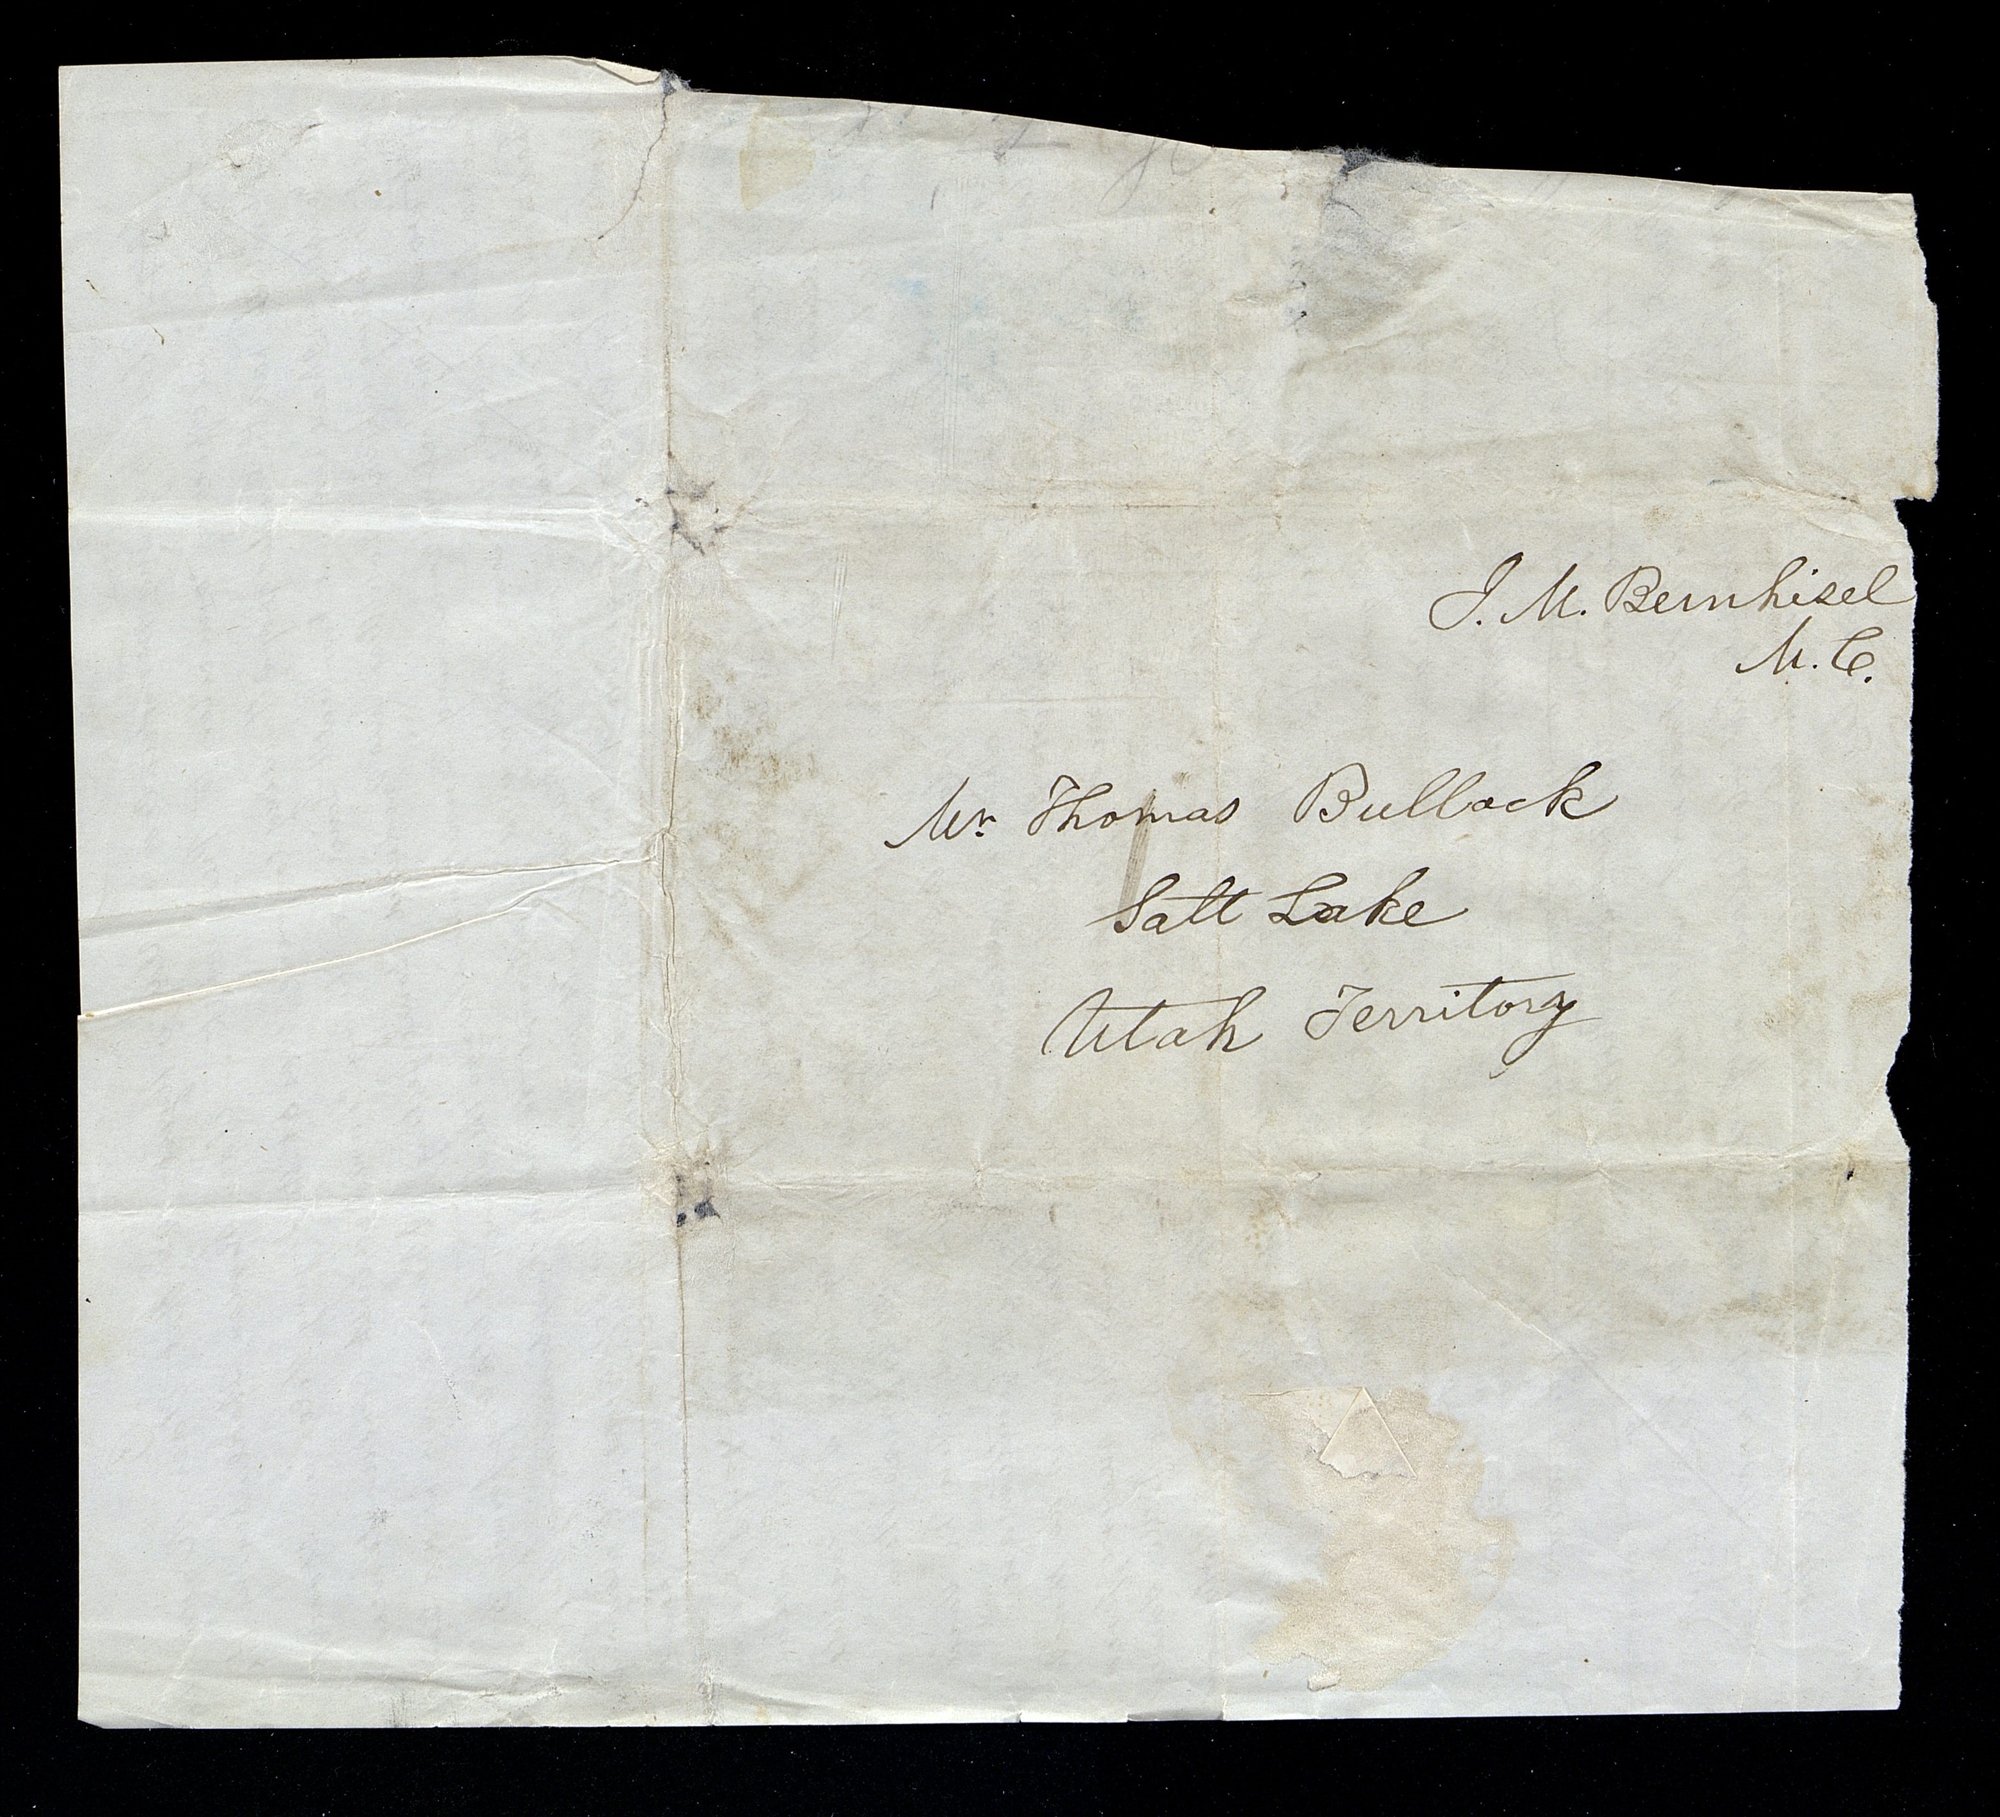 J. M. Bernhisel
M. C.
Mr. Thomas Bullock
Salt Lake
Utah Territory